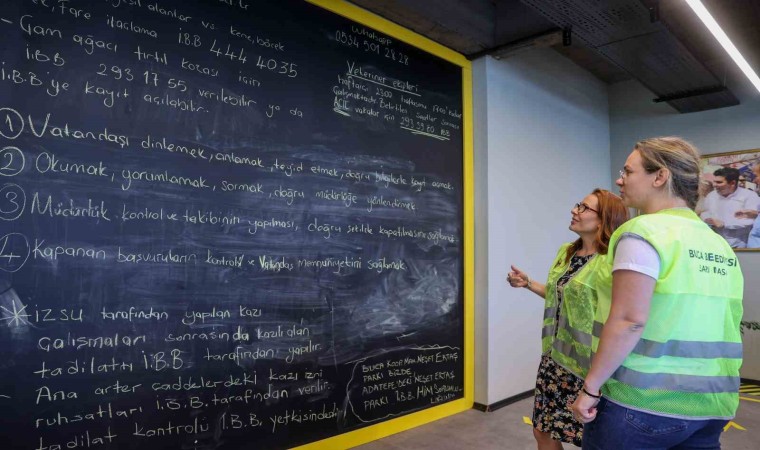 alanlar ve kene, böcek
fare ilaçlama İ.B.B 444 4035
- Çam ağacı tırtıl kozası için
İ.B.B 293 17 55 verilebilir ya da
İ.B.B'ye kayıt açılabilir.
WhatsApp
Veteriner ekipleri
1 Vatandaşı dinlemek, anlamak, teyid etmek, doğru bilgilerle kayıt açmak.
2 Okumak, yorumlamak, sormak, doğru müdürlüğe yönlendirmek
3 Müdürlük kontrol ve takibinin yapılması, doğru şekilde kapatılmasını sağlamak
4 Kapanan başvuruların kontrolü ve Vatandaş Memnuniyetini sağlamak
* İZSU tarafından yapılan kazı
çalışmaları sonrasında kazılı alan
tadilatı İ.B.B tarafından yapılır.
- Ana arter caddelerdeki kazı izni
ruhsatları İ.B.B. tarafından verilir.
tadilat kontrolü İ.B.B. yetkisindedir
BUCA KOOP. MAH. NEŞET ERTAŞ
PARKI BİZDE
ADATEPE'DEKİ NEŞET ERTAŞ
PARKI İ.B.B.
BUCA BELEDİYESİ